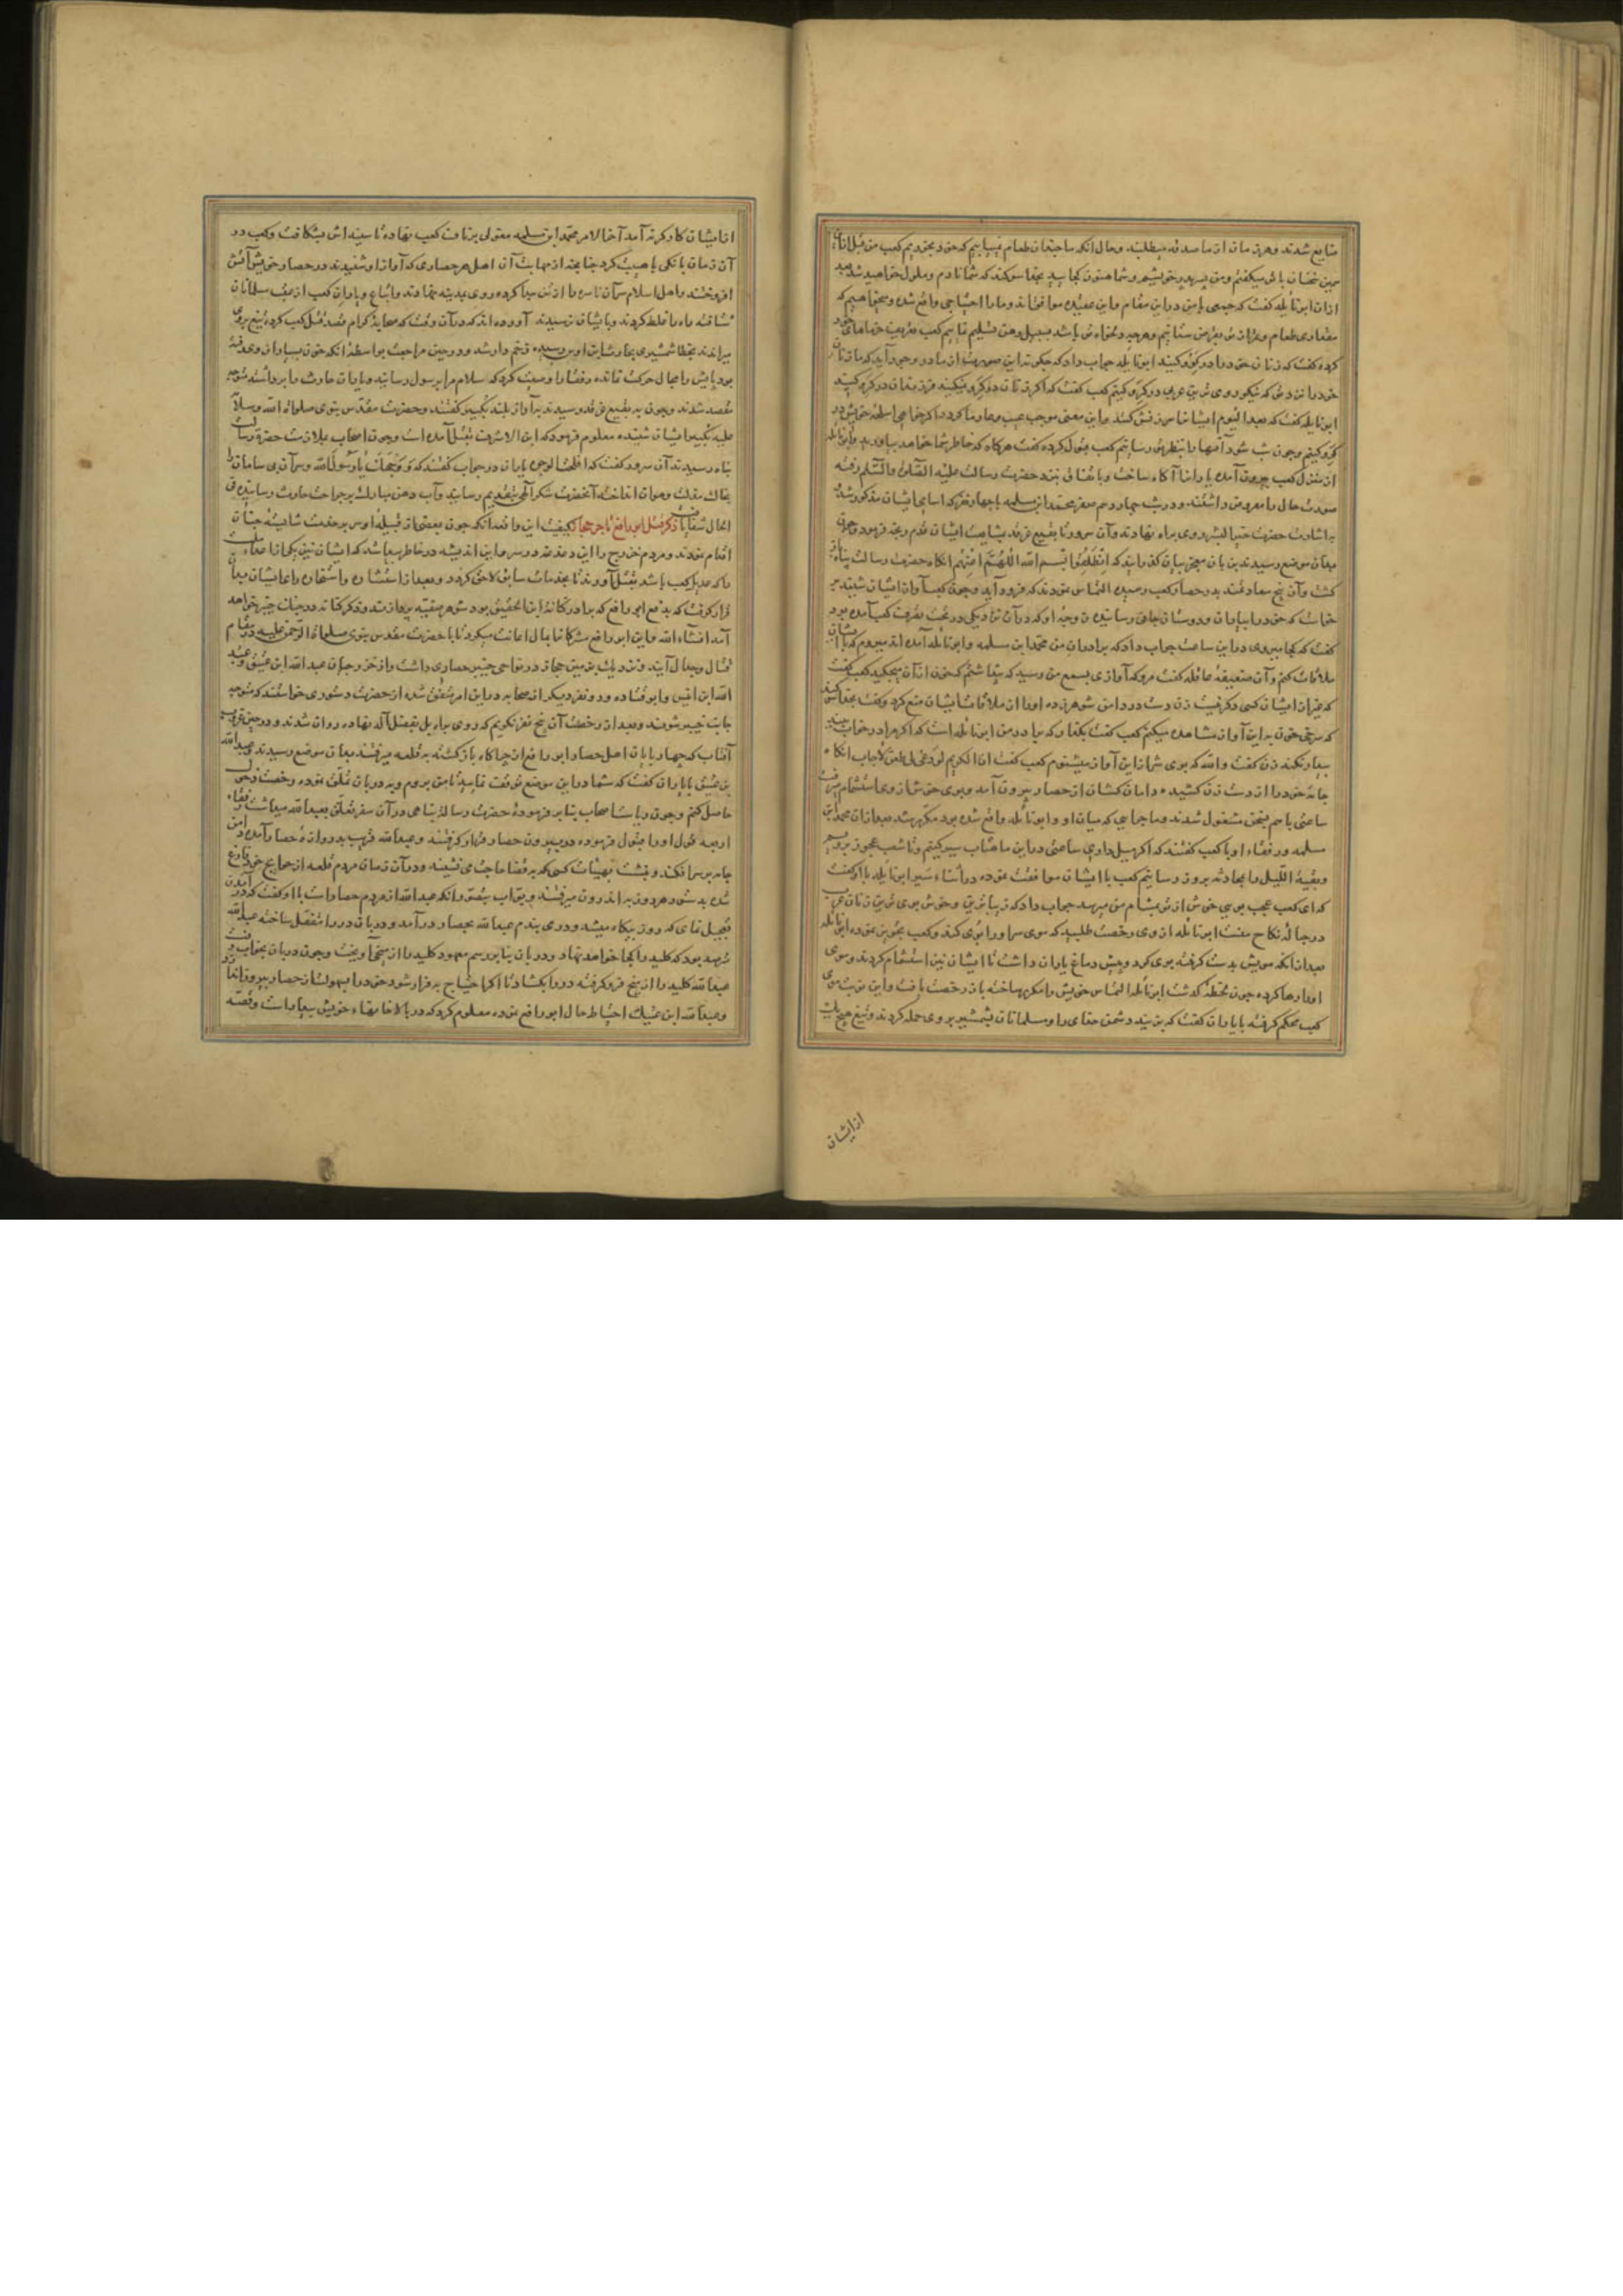 ضایع شدند و هر زمان از ما صدقه میطلبد و حال آنکه ما چندان طعام نمییابیم که خود بخوریم کعب من قبل
سخنان باش میکفتم و من پسر پدر خویشم و شما هنوز کجایید بخدا سوکند که شما نادم و ملول خواهید شد بعد
از ان ابو نایله کفت که جمعی با من درین مقام و این عقیده موافق اند و ما را احتیاجی واقع شده میخواهیم که
مقداری طعام
کرده کفت که زنان خود را در کرو کنید ابو نایله جواب داد که چکونه این صورت از ما در وجود آید که ما زنان
خود را نزد تو که نیکو روی ترین عربی در کرو کنیم کعب کفت که اکر زنان در کرو نمیکنید فرزندان در کرو کنید
ابو نایله کفت که بعد الیوم ایشان را سرزنش کنند و این معنی موجب عیب و عار ما کردد اکر خواهی اسلحه خویش در
کرو کنیم و چون شب شود آنها را بنظر تو رسانیم کعب قبول کرده کفت هر کاه که خاطر شما خواهد بیاورید و ابو نایله
از منزل کعب بیرون آمده یارانرا آکاه ساخت و باتفاق نزد حضرت رسالت علیه الصلوة و السلم رفته
صورت حال را معروض داشتند و در شب چهاردهم محمد ابن مسلمه با چهار نفر که اسامی ایشان مذکور شد
باشارت حضرت خیر البشر روی براه نهادند و آن سرور تا بقیع غرقد بمشایعت ایشان قدم رنجه فرمود و چون
بدان موضع رسیدند بزبان معجز بیان کذرانید که انطلقوا بسم الله اللهم اعنهم آنکاه حضرت رسالت پناه باز
کشت و آن پنج سعادتمند بدر حصار کعب رسیده التماس نمودند که فرود آید و چون کعب آواز ایشان شنید بر
خواست که خود را بیاران و دوستان جانی رسانیده و زوجه او که در آن نزدیکی در تحت تصرف کعب آمده بود
کفت که کجا میروی درین ساعت جواب داد که برادران من محمد ابن مسلمه و ابو نایله آمده اند میروم که با ایشان
ملاقات کنم و آن ضعیفه عاقله کفت مرو که آوازی بسمع من رسید که پنداشتم که خون از آن میچکد کعب کفت
که غیر از ایشان کسی دیکر نیست زن دست در دامن شوهر زده او را از ملاقات ایشان منع کرد و کفت بخدا سوکند
که سرخی خون به این آواز مشاهده میکنم کعب کفت بکذار که برادر من ابو نایله است که اکر مرا در خواب بیند
بیدار نکند زن کفت والله که بوی شر از این آواز میشنوم کعب کفت ان الکریم لو دعی الی طعن لاجاب آنکاه
جامه خود را از دست زن کشیده دامان کشان از حصار بیرون آمد و بوی خوش از وی استشمام میرفت
ساعتی با هم بسخن مشغول شدند و ماجرایی که میان او و ابو نایله واقع شده بود مکرر شد بعد از ان محمد ابن
مسلمه و رفقاء او با کعب کفتند که اکر میل داری ساعتی درین ماهتاب سیر کنیم و تا شعب عجوز برویم
و بقیة اللیل را بمحادثه بروز رسانیم کعب با ایشان موافقت نموده در اثناء سیر ابو نایله با او کفت
که ای کعب عجب بویی خوش از تو بمشام من میرسد جواب داد که زیباترین و خوش بوی ترین زنان عرب
در حباله نکاح منست ابو نایله از وی رخصت طلبید که موی سر او را بوی کند و کعب تجویز نموده ابو نایله
بعد از انکه مویش بدست کرفته بوی کرد و پیش دماغ یاران داشت تا ایشان نیز استشمام کردند و موی
او را رها کرده چون لحظه کذشت ابو نایله التماس خویش را مکرر ساخته باز رخصت یافت و این نوبت موی
کعب محکم کرفته با یاران کفت که بزنید دشمن خدای را و مسلمانان بشمشیر بر وی حمله کردند و تیغ هیچ یک
از ایشان
از ایشان کارکر نه آمد آخر الامر محمد ابن مسلمه مغولی بر ناف کعب نهاده تا سینه اش بشکافت و کعب در
آن زمان بانکی با هیبت کرد چنانچه از مهابت آن اهل هر حصاری که آواز او شنیدند در حصار خویش آتش
افروختند و اهل اسلام سر آن ناسره را از تن جدا کرده روی بمدینه نهادند و اتباع و یاران کعب از عقب مسلمانان
شتافته راه را غلط کردند و با ایشان نرسیدند آورده اند که در آن وقت که صحابه کرام قصد قتل کعب کرده تیغ بر وی
میراندند بخطا شمشیری بحارث ابن اوس رسیده زخم دار شد و در حین مراجعت بواسطه آنکه خون بسیار از وی رفته
بود پایش را مجال حرکت نمانده رفقا را وصیت کرد که سلام مرا برسول رسانید و یاران حارث را برداشته متوجه
مقصد شدند و چون به بقیع غرقد رسیدند به آواز بلند تکبیر کفتند و حضرت مقدس نبوی صلوات الله و سلامه
علیه تکبیر ایشان شنیده معلوم فرمود که ابن الاشرف بقتل آمده است و چون اصحاب بملازمت حضرت رسالت
پناه رسیدند آن سرور کفت که افلحت الوجوه یاران در جواب کفتند که و وجهک یا رسول الله و سر آن بی سامان را
بخاک مذلت و هوان انداخته آنحضرت شکر آلهی بتقدیم رسانید و آب دهن مبارک بر جراحت حارث رسانیده فی
الحال شفا یافت ذکر قتل ابو رافع تاجر حجاز کیفیت این واقعه آنکه چون بعضی از قبیله اوس بر خدمت شایسته چنان
اقدام نمودند مردم خزرج را این دغدغه در سر و این اندیشه در خاطر پیدا شد که ایشان نیز یکی از اعداء ملت
را که عدیل کعب باشد بقتل آورند تا بخدمات سابق لاحق کردد و بعد از استشاره و استخاره رای ایشان بدان
قرار کرفت که بدفع ابو رافع که برادر کنانه ابن الحقیق بود شوهر صفیه پردازند و ذکر کنانه در جنک خیبر خواهد
آمد انشاء الله و این ابو رافع مشرکان را بمال اعانت میکرد تا با حضرت مقدس نبوی صلوات الرحمن علیه در مقام
قتال و جدال آیند و نزدیک بزمین حجاز در نواحی خیبر حصاری داشت و از خزرجیان عبد الله ابن عتیک و عبد
الله ابن انیس و ابو قتاده و دو نفر دیکر از صحابه درین امر متفق شده از حضرت دستوری خواستند که متوجه
جانب خیبر شوند و بعد از رخصت آن پنج نفر نکونام که روی براه نهاده روان شدند و در حین غروب
آفتاب که چهارپایان اهل حصار ابو رافع از چراکاه بازکشته به قلعه میرفتند بدان موضع رسیدند عبد الله
بن عتیک بایاران کفت که شما درین موضع توقف نمایید تا من بروم و به دربان تملق نموده رخصت دخول
حاصل کنم و چون
اربعه قول او را قبول فرموده در بیرون حصار قرار کرفتند و عبد الله قریب بدروازه حصار آمده دامن
جامه بر سر افکند و نشست بهیئات کسی که به قضا حاجت می نشیند و در آن زمان مردم قلعه از حوایج خود فارغ
شده بدستور هر روز به اندرون میرفتند و بواب بتصور آنکه عبد الله از مردم حصار است با او کفت که در آمدن
تعجیل نمای که روز بیکاه میشود و دری بندم عبد الله بحصار درآمد و دربان در را مقفل ساخته عبد الله
مترصد بود که کلید را کجا خواهد نهاد و دربان بنا بر رسم معهود کلید را از میخ آویخت و چون دربان بخواب رفت
عبد الله کلید را از میخ فرو کرفته در را بکشاد تا اکر احتیاج به فرار شود خود را بسهولت از حصار بیرون اندازد
و عبد الله ابن عتیک احتیاط حال ابو رافع نموده معلوم کرد که در بالاخانهاء خویش بیدار است و قصه